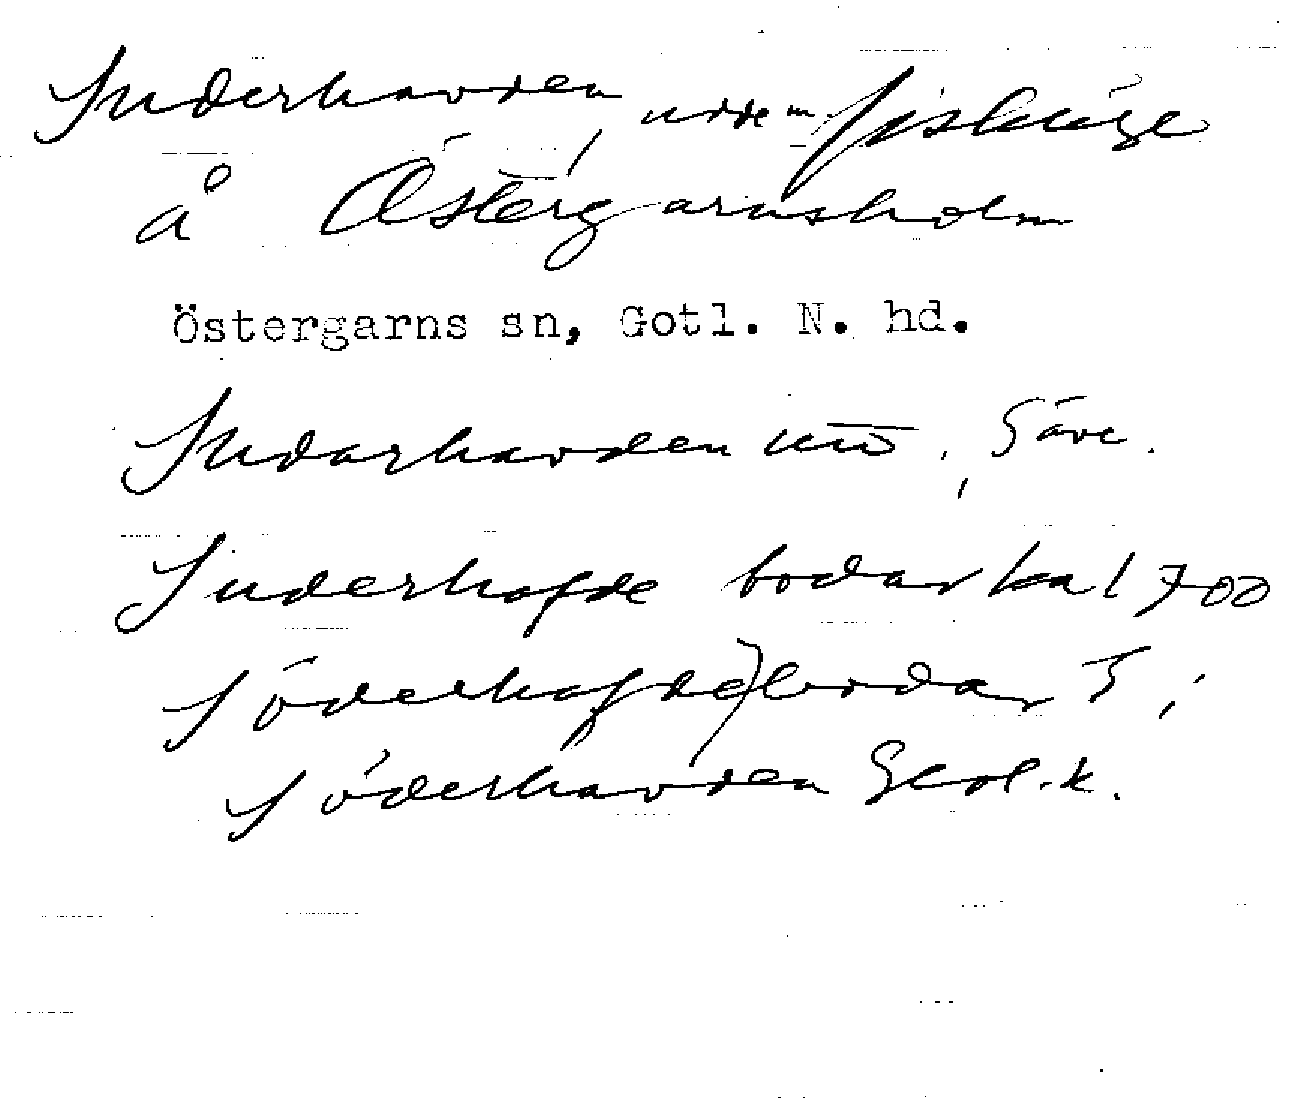 Suderhavden, udde m. fiskläge
å Östergarnsholm
Östergarns sn, Gotl. N. hd.
Sudarhavden, Säve.
Suderhafde bodar ka 1700
Söderhafde) bodar S,
Söderhavden Geol. k.